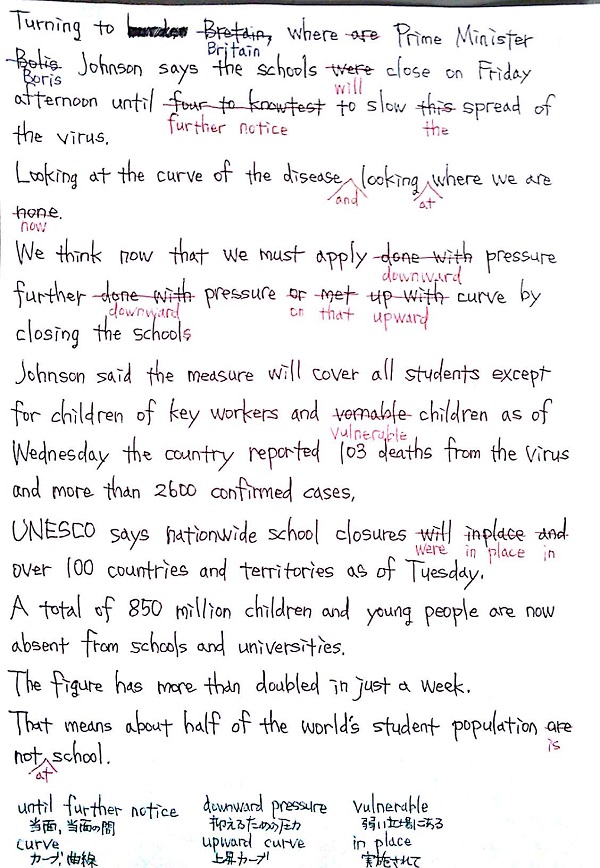 Turning to Bretain, where are Prime Minister
Britain
Bolis Johnson says the schools were close on Friday
Boris will
afternoon until four to knowtest to slow this spread of
further notice the
the virus.
Looking at the curve of the disease looking where we are
and at
none.
now
We think now that we must apply done with pressure
downward
further done with pressure or met up with curve by
downward on that upward
closing the schools
Johnson said the measure will cover all students except
for children of key workers and vornable children as of
vulnerable
Wednesday the country reported 103 deaths from the Virus
and more than 2600 confirmed cases,
UNESCO says nationwide school closures will inplace and
were in place in
over 100 countries and territories as of Tuesday.
A total of 850 million children and young people are now
absent from schools and universities.
The figure has more than doubled in just a week.
That means about half of the world's student population are
is
not school.
at
until further notice downward pressure vulnerable
当面, 当面の間 抑えるための圧力 弱い立場にある
curve upward curve in place
カーブ, 曲線 上昇カーブ 実施されて